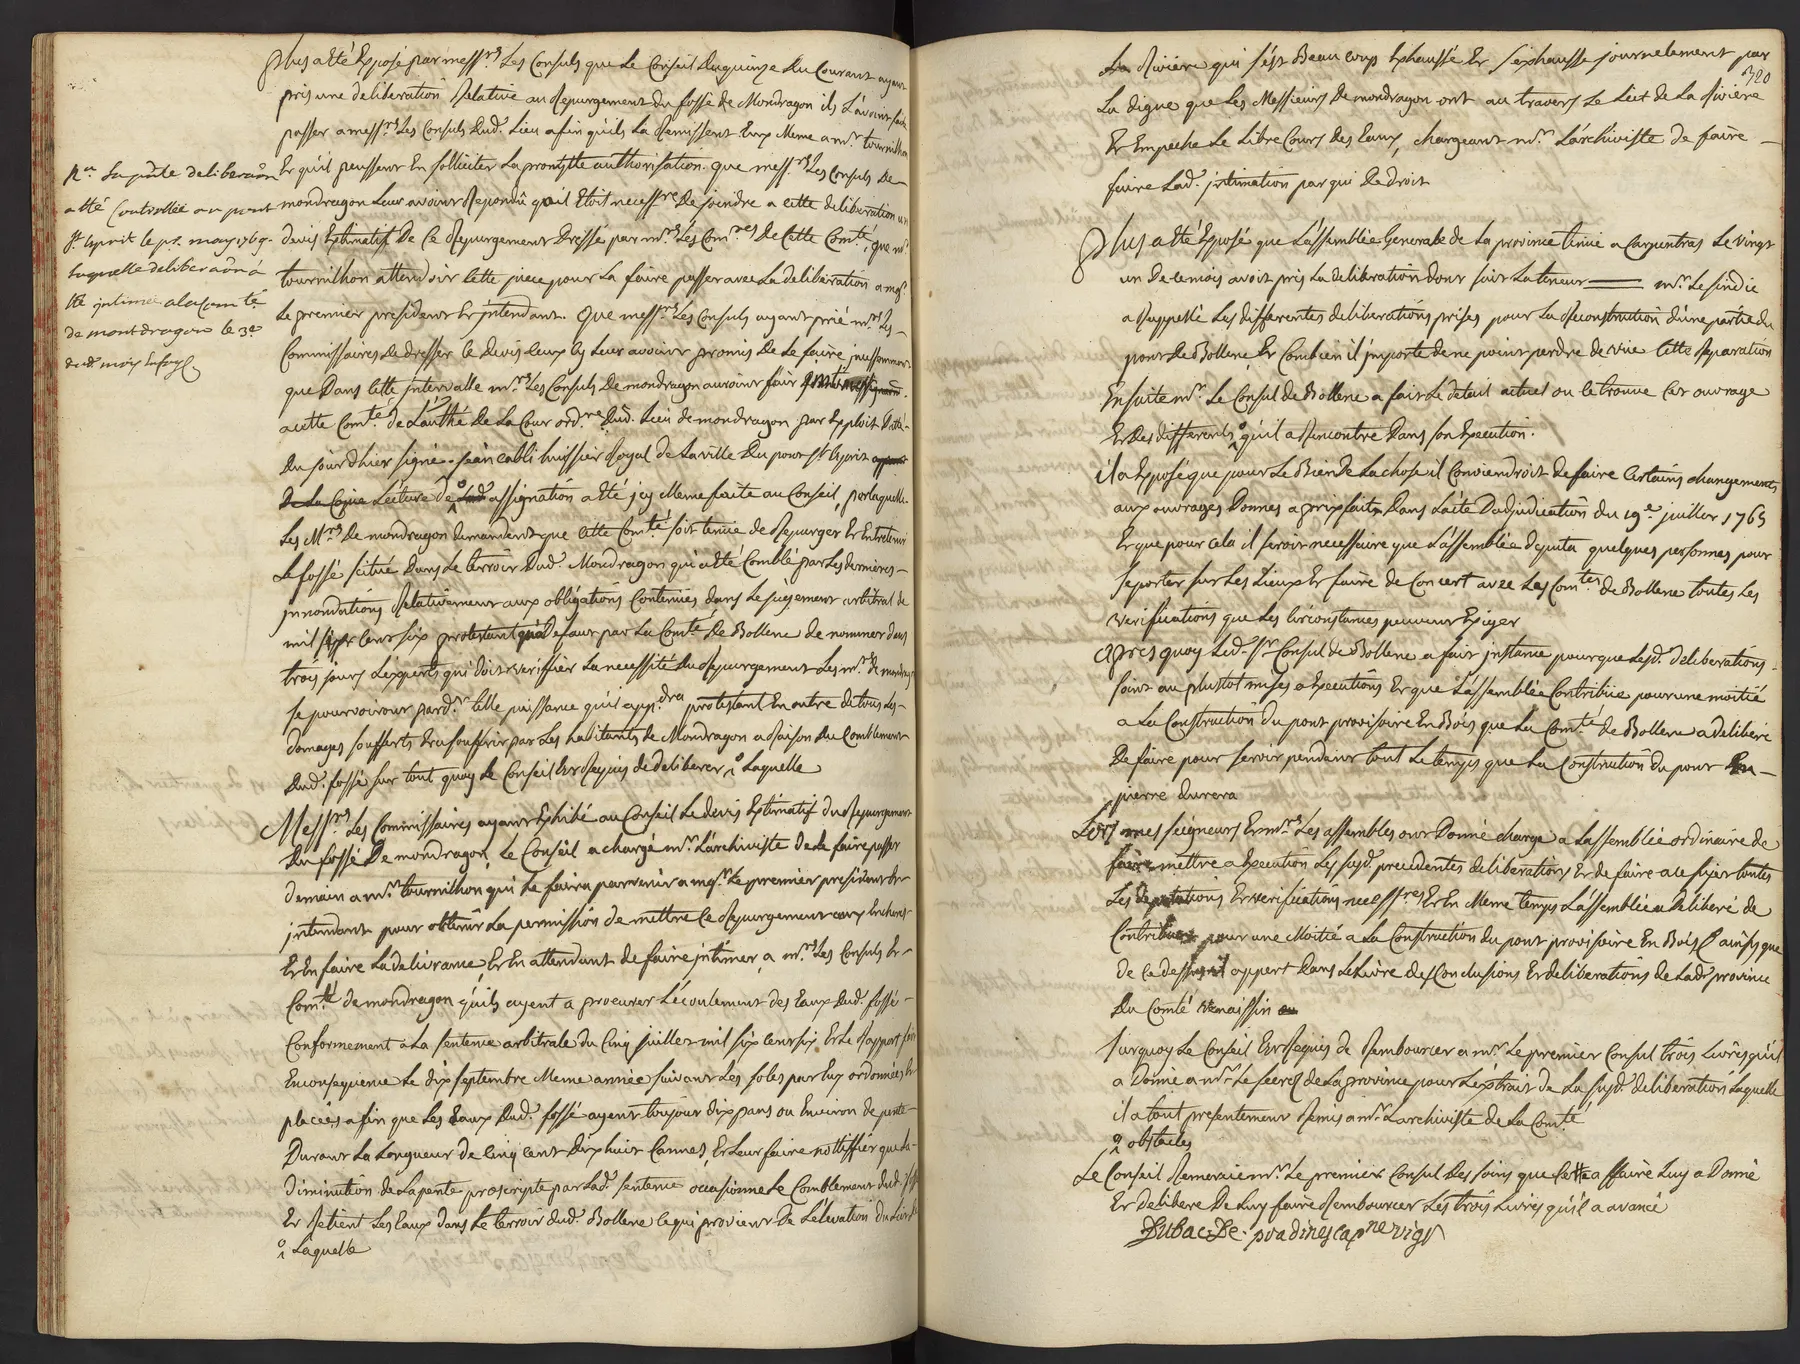 Plus a été Exposé par mess.rs Les Consuls que Le Conseil Du quinze Du Courant ayant
pris une deliberation Relative au Repurgement du fossé de Mondragon ils L'avoint faite
passer a mess.rs Les Consuls Dud. Lieu afin qu'ils La Remissent Eux Meme a m.r tournilhon
Et qu'il peussent En solliciter La prompte authorisation. que mess.rs Les Consuls De
mondragon Leur avoint Repondû qu'il Etoit necess.re De joindre a cette deliberation un
devis Estimatif De Ce Repurgement Dressé par m.rs Les Com.res De Cette Com.té, que m.r
tournilhon attendoit Cette piece pour La faire passer avec La deliberation a mg.r
Le premier president Et jntendant. Que mess.rs Les Consuls ayant prié m.rs Les
Commissaires De dresser le devis ceux cy Leur avoint promis De Le faire jncessamment
que Dans cette jntervalle m.rs Les Consuls De mondragon auroint fait
a cette Com.té de L'auth.é De La Cour ord.re Dud. Lieu de mondragon par Exploit
Du jourd'hier signé Jean cabli huissier Royal de La ville Du pont S.t Esprit
De La Copie Lecture de assignation a été jcy Meme faite au Conseil, par laquelle
Les M.rs De mondragon demandent que cette Com.té soit tenüe de Repurger Et Entretenir
Le fossé scitué Dans Le terroir Dud. Mondragon qui a été Comblé par Les dernieres
jnnondations Relativement aux obligations Contenües dans Le jugement arbitral de
mil six cent six protestant qu'a Defaut par La Com.té De Bollene de nommer dans
trois jours L'experts qui doit veriffier La necessité du Repurgement Les m.rs de mondragon
se pourvoiront pard.t telle puissance qu'il app.dra protestant En outre de tous Les
domages soufferts Et a souffrir par Les habitants de Mondragon a Raison du Comblement
Dud. fossé sur tout quoy Le Conseil Est Requis de deliberer
Mess.rs Les Commissaires ayant Exhibé au Conseil Le devis Estimatif du Repurgement
Du fossé De mondragon, Le Conseil a chargé m.r L'archiviste De Le faire passer
demain a m.r tournilhon qui Le faira parvenir a mg.r Le premier president Et
jntendant pour obtenir La permission de mettre Ce Repurgement aux Encheres
Et En faire La delivrance, Et En attendant de faire jntimer a m.rs Les Consuls Et
Com.té de mondragon qu'ils ayent a procurer L'écoulement des Eaux Dud. fossé
Conformement a La sentence arbitrale du Cinq juillet mil six cent six Et Le Rapport fait
En consequence Le dix septembre Meme année suivant Les soles par Eux ordonnées Et
placées afin que Les Eaux Dud. fossé ayent toujour dix pans ou Environ de pente
Durant La Longueur de Cinq cent Dix huit Cannes, Et Leur faire nottiffier que La
diminution de La pente proscripte par Lad. sentence occasionne Le Comblement dud. fossé
Et Retient Les Eaux dans Le terroir dud. Bollene ce qui provient De L'elevation Du Lit de
Laquelle
N.a La p.nte deliberaon
a été Controllée au pont
S.t Esprit le p.r may 1769.
Laquelle deliberaon a
été jntimée a la com.té
de montdragon le 3.e
dud. mois
320
La Riviere qui s'est Beaucoup Exhaussé Et s'exhausse journelement par
La digue que Les Messieurs De mondragon ont au travers Le Liet de La Riviere
Et Empeche Le Libre Cours Des Eaux, chargeant m.r L'archiviste de faire
faire Lad. jntimation par qui De droit
Plus a été Exposé que L'assemblée Generale de La province tenüe a Carpentras Le vingt
un De ce mois avoit pris La deliberation dont suit La teneur — m.r Le sindic
a Rappellé Les differentes deliberations prises pour La Reconstruction d'une partie du
pont De Bollene, Et Combien il jmporte de ne point perdre de viüe Cette Reparation
Ensuite m.r Le Consul de Bollene a fait Le detail actuel ou se trouve cet ouvrage
Et Des differents qu'il a Rencontré Dans son Execution.
il a Exposé que pour Le Bien de La chose il Conviendroit de faire Certains changements
aux ouvrages Donnés a prixfait Dans L'acte D'adjudication du 19.e juillet 1765
Et que pour cela il seroit necessaire que L'assemblée deputa quelques personnes pour
se porter sur Les Lieux Et faire de Concert avec Les Com.res de Bollene toutes Les
verifications que Les Circonstances peuvent Exiger
Apres quoy Led. S.r Consul de Bollene a fait jnstance pour que Lesd. deliberations
soint au plustot mises a Execution, Et que L'assemblée Contribüe pour une moitié
a La Construction du pont provisoire En Bois que La Com.té de Bollene a deliberé
De faire pour servir pendant tout Le temps que La Construction du pont En
pierre durera
Les mes seigneurs Et m.rs Les assemblés ont Donné charge a Lassemblée ordinaire de
faire mettre a Execution Les susd. precedentes deliberations Et de faire a ce sujet toutes
Les deputations Et verifications necess.res Et En Meme temps L'assemblée a Deliberé de
Contribuer pour une Moitié a La Construction du pont provisoire En Bois ainsy que
de ce dessus il appert Dans Le Livre des Conclusions Et deliberations de Lad. province
Du Comté venaissin
sur quoy Le Conseil Est Requis de Rembourcer a m.r Le premier Consul trois Livres qu'il
a Donné a m.r Le secret.re de La province pour L'extrait de La susd. deliberation Laquelle
il a tout presentement Remis a m.r L'archiviste de La Com.té
obstacles
Le Conseil Remercie m.r Le premier Consul Des soins que Cette affaire Luy a Donné
Et delibere De Luy faire Rembourcer Les trois Livres qu'il a avancé
Dubac De. pradines cap.ne vig.r